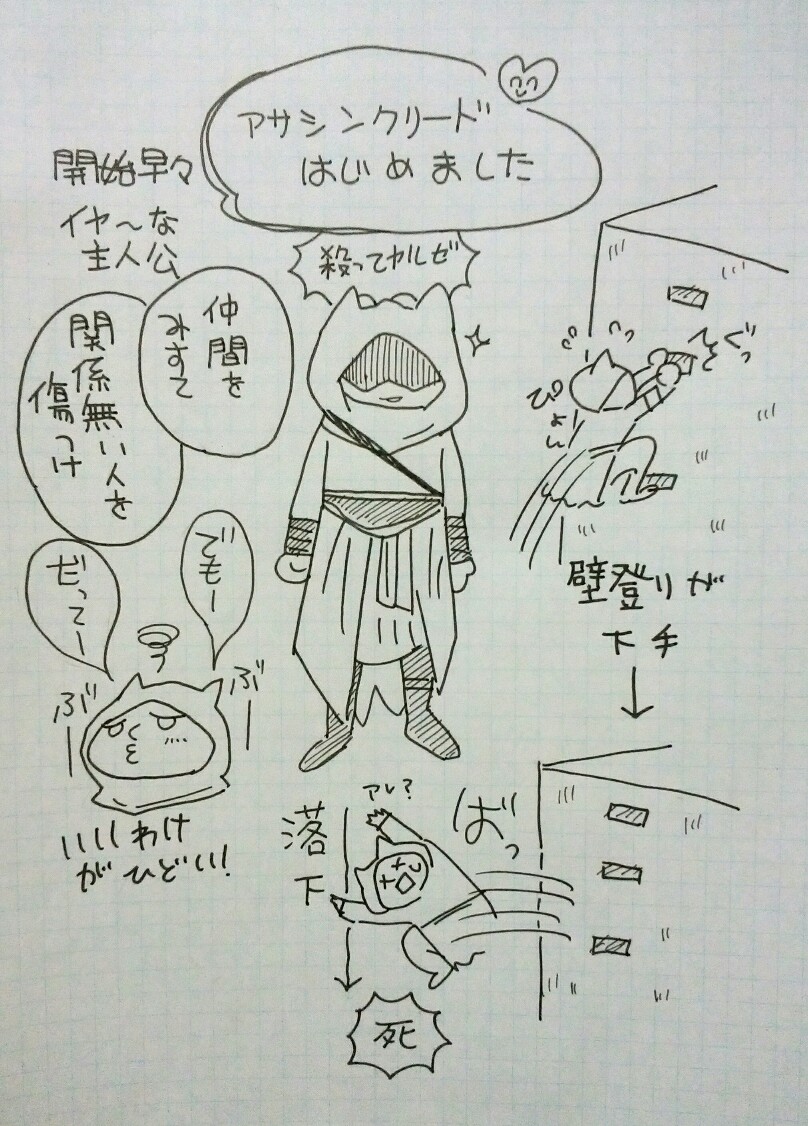 アサシンクリード
はじめました
開始早々
イヤ〜な
主人公
殺ってヤルゼ
仲間を
みすて
関係無い人を
傷つけ
でもー
だってー
ぶ
ぶ
いいわけ
がひどい!
ぴょん!
壁登りが
下手
ばっ
アレ?
落下
死